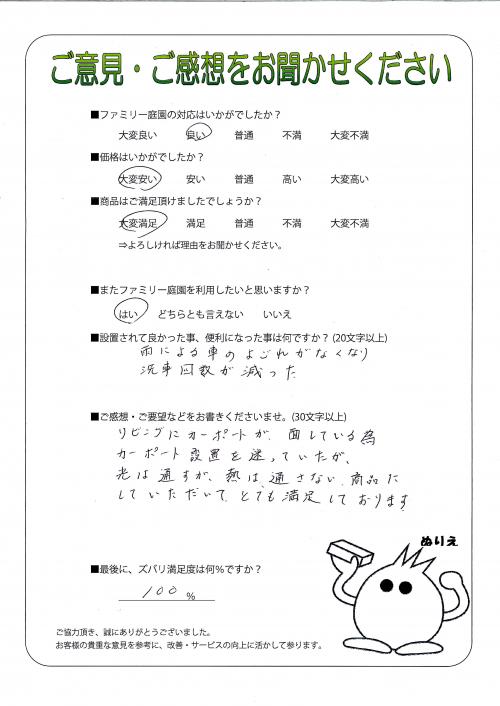 ご意見・ご感想をお聞かせください
■ファミリー庭園の対応はいかがでしたか？
大変良い　良い　普通　不満　大変不満
■価格はいかがでしたか？
大変安い　安い　普通　高い　大変高い
■商品はご満足頂けましたでしょうか？
大変満足　満足　普通　不満　大変不満
⇒よろしければ理由をお聞かせください。
■またファミリー庭園を利用したいと思いますか？
はい　どちらとも言えない　いいえ
■設置されて良かった事、便利になった事は何ですか？(20文字以上)
雨による車のよごれがなくなり
洗車回数が減った
■ご感想・ご要望などをお書きくださいませ。(30文字以上)
リビングにカーポートが、面している為
カーポート設置を迷っていたが、
光は通すが、熱は、通さない、商品に
していただいて、とても満足しております
ぬりえ
■最後に、ズバリ満足度は何％ですか？
100 %
ご協力頂き、誠にありがとうございました。
お客様の貴重な意見を参考に、改善・サービスの向上に活かして参ります。